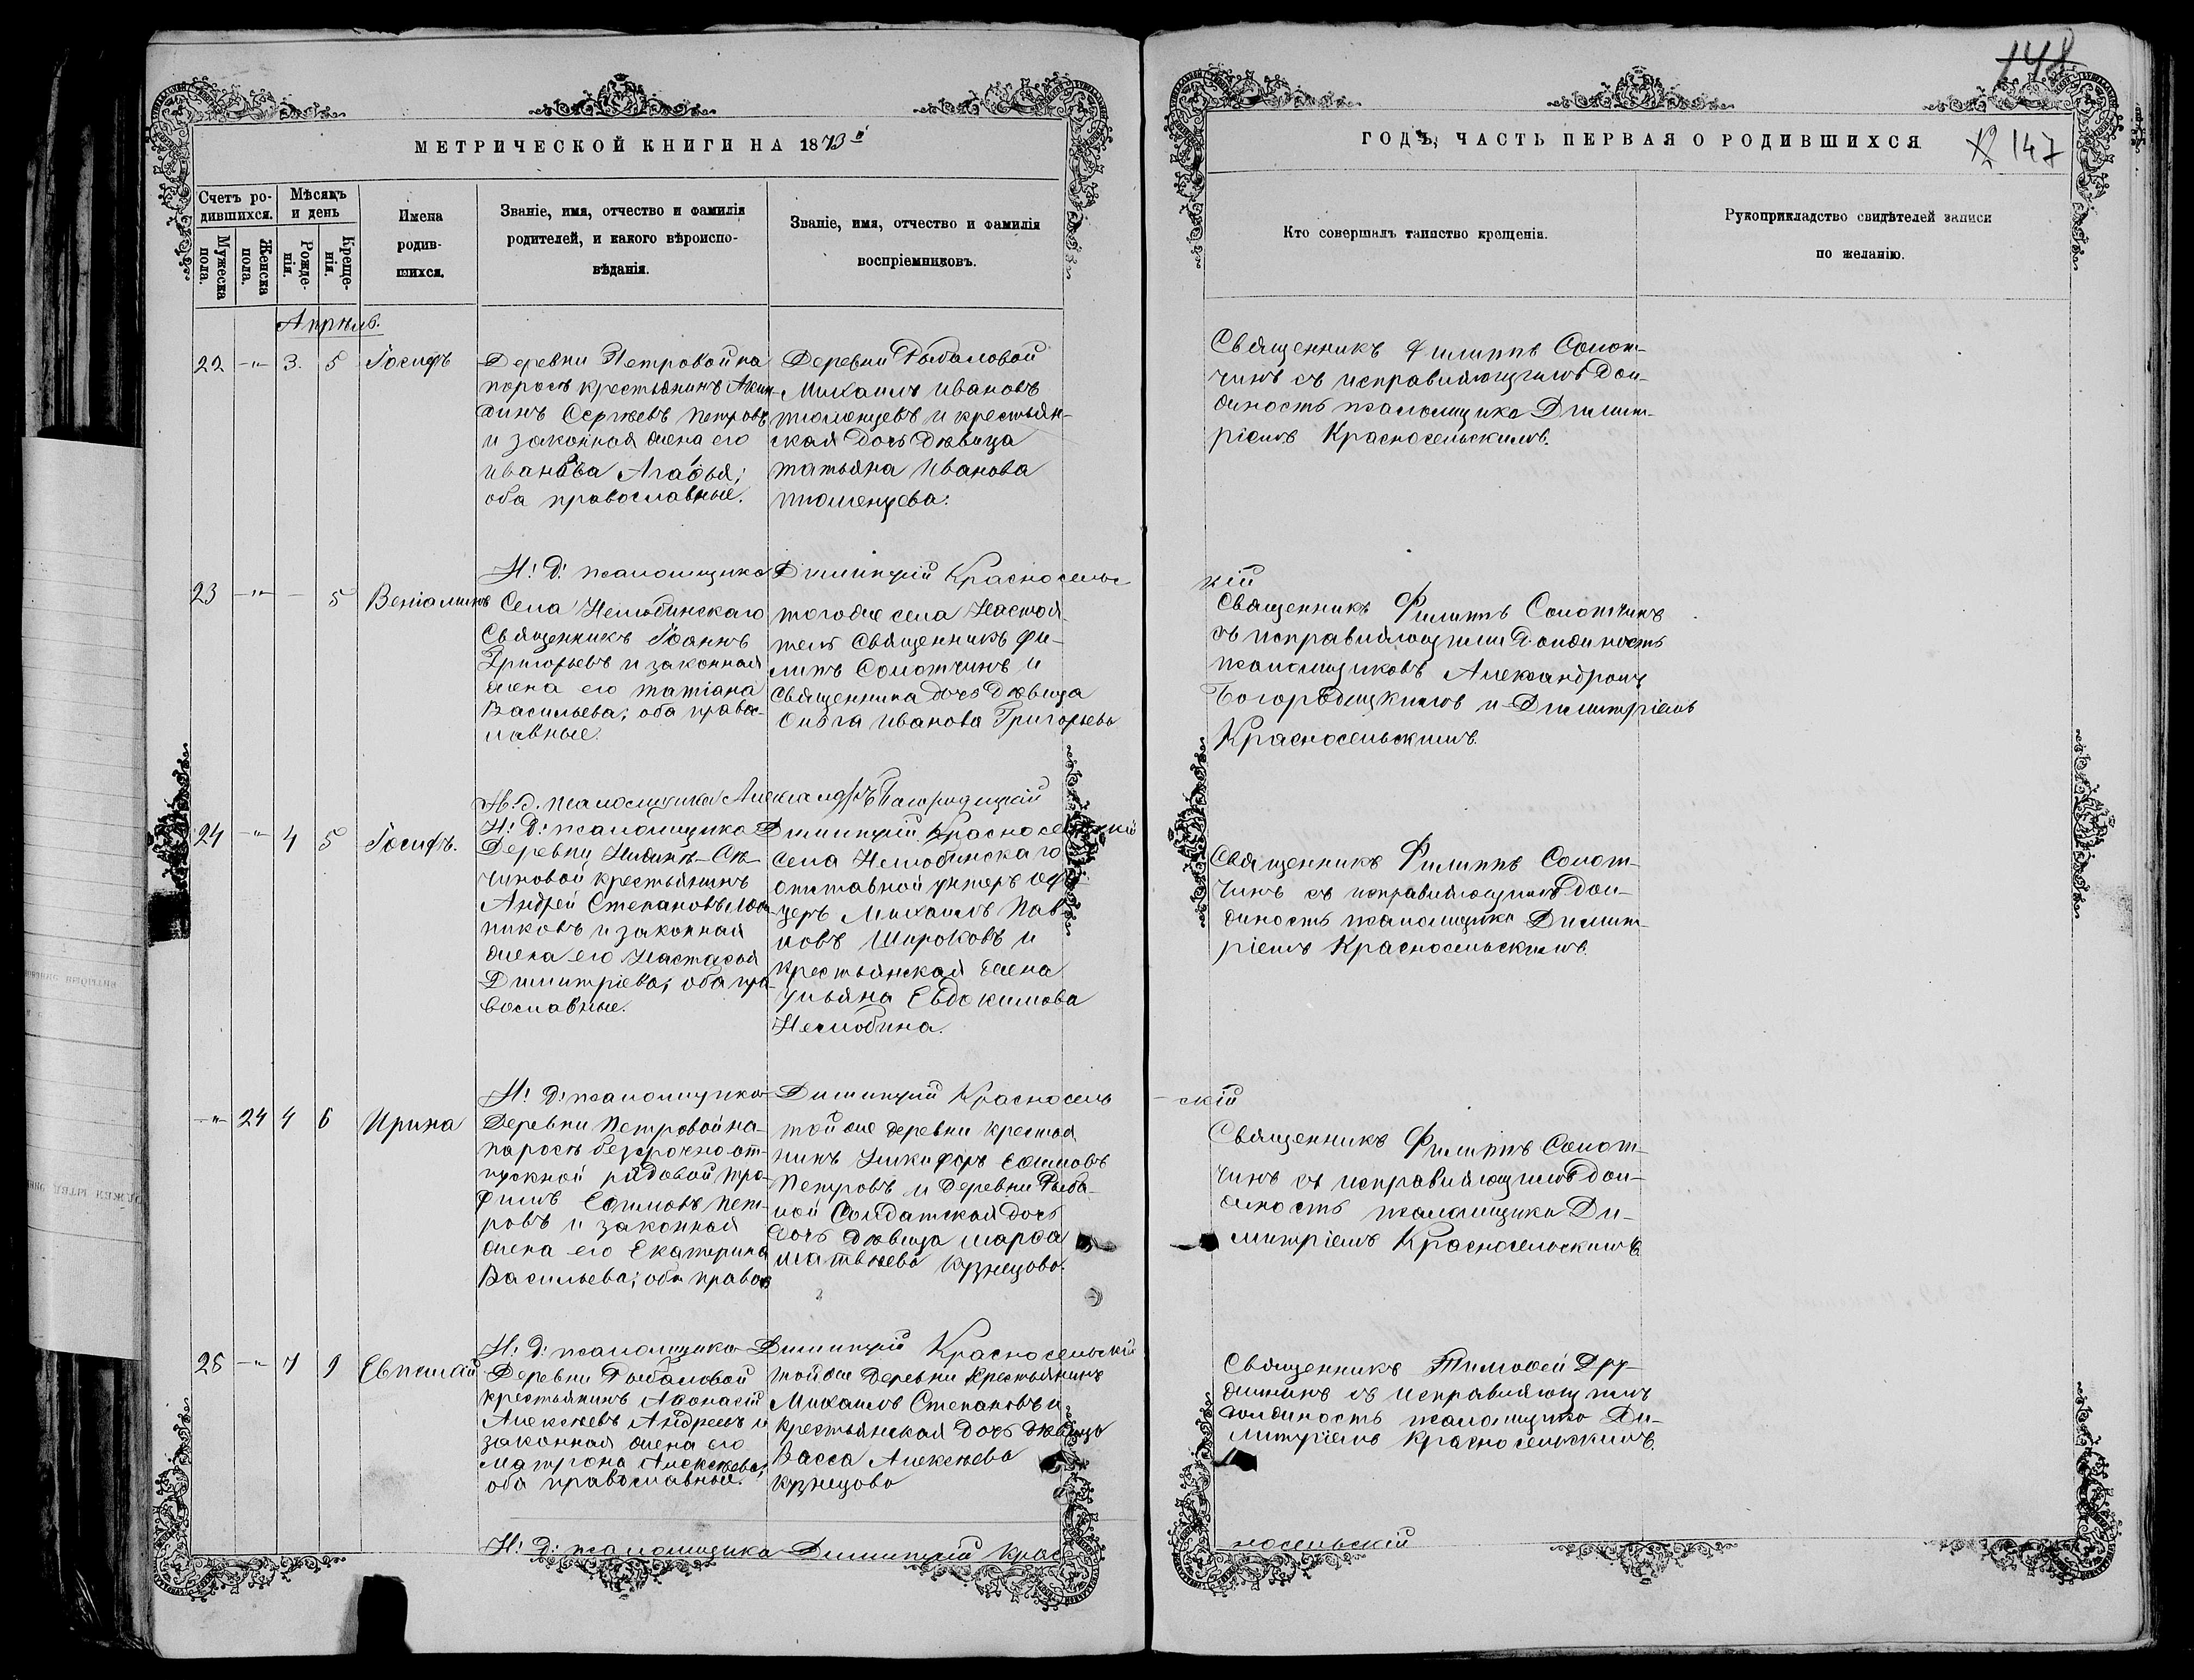 148
МЕТРИЧЕСКОЙ КНИГИ НА 1873й
ГОДЪ, ЧАСТЬ ПЕРВАЯ О РОДИВШИХСЯ
147
Счетъ ро-
дившихся.
Мужеска пола.
Женска пола.
Мѣсяцъ
и день
Рожде-
нія.
Креще-
нія.
Имена
родив-
шихся.
Званіе, имя, отчество и фамилія
родителей, и какого вѣроиспо-
вѣданія.
Званіе, имя, отчество и фамилія
воспріемниковъ.
Кто совершалъ таинство крещенія.
Рукоприкладство свидѣтелей записи
по желанію.
Апрѣль.
22 -"- 3. 5 Іосифъ
Деревни Петровой на
поросъ крестьянинъ
Сергѣевъ Петровъ
и законная жена его
Иванова Агаѳья;
оба православные.
Деревни Рыбаловой
Михаилъ Ивановъ
Тюменцевъ и крестьян-
ская дочь дѣвица
Татьяна Иванова
Тюменцева.
Священникъ Филиппъ Солот-
чинъ съ исправляющимъ дол-
жность псаломщика Димит-
ріемъ Красносельскимъ.
И: д: псаломщика Димитрій Красносельс
кій
23 -"- - 5 Веніаминъ
Села Нелюбинскаго
Священникъ Іоаннъ
Григорьевъ и законная
жена его Татіана
Васильева; оба правос-
лавные.
тогоже села Настоя-
тель Священникъ Фи-
липъ Солотчинъ и
Священника дочь дѣвица
Ольга Иванова Григорьева
Священникъ Филиппъ Солотчинъ
съ исправляющими должность
псаломщиковъ Александромъ
Богородицкимъ и Димитріемъ
Красносельскимъ.
И. д. псаломщика Александръ Богородицкій
И: д: псаломщика Димитрій Красносельскій
24 -"- 4 5 Іосифъ.
Деревни
чиновой крестьянинъ
Андрей Степановъ
никовъ и законная
жена его Настасья
Димитріева; оба пра-
вославные.
Села Нелюбинскаго
отставной унтеръ офи-
церъ Михаилъ Пав-
ловъ Широковъ и
крестьянская жена
Ульяна Евдокимова
Нелюбина.
Священникъ Филиппъ Солот-
чинъ съ исправляющимъ дол-
жность псаломщика Димит-
ріемъ Красносельскимъ.
И: д: псаломщика Димитрій Красносель
-скій
-"- 24 4 6 Ирина
Деревни Петровой на-
поросѣ безсрочно от-
пускной рядовой Тро-
фимъ Ефимовъ Пет-
ровъ и законная
жена его Екатерина
Васильева; оба правос
той же деревни крестья
нинъ Никифоръ Ефимовъ
Петровъ и Деревни Рыба-
лой Солдатская дочь
дочь дѣвица Марѳа
Матвѣева Кузнецова.
Священникъ Филиппъ Солот-
чинъ съ исправляющимъ дол-
жность псаломщика Ди-
митріемъ Красносельскимъ
И: д: псаломщика Димитрій Красносельскій
25 -"- 7 9 Евпсихій
Деревни Рыбаловой
крестьянинъ Аѳонасій
Алексѣевъ Андреевъ и
законная жена его
Матрона Алексѣева;
оба православные.
той же деревни крестьянинъ
Михаилъ Степановъ и
крестьянская дочь дѣвица
Васса Алексѣева
Кузнецова
Священникъ Тимофей Дру-
жининъ съ исправляющимъ
должность псаломщика Ди-
митріемъ Красносельскимъ.
И: д: псаломщика Димитрій Крас
носельскій